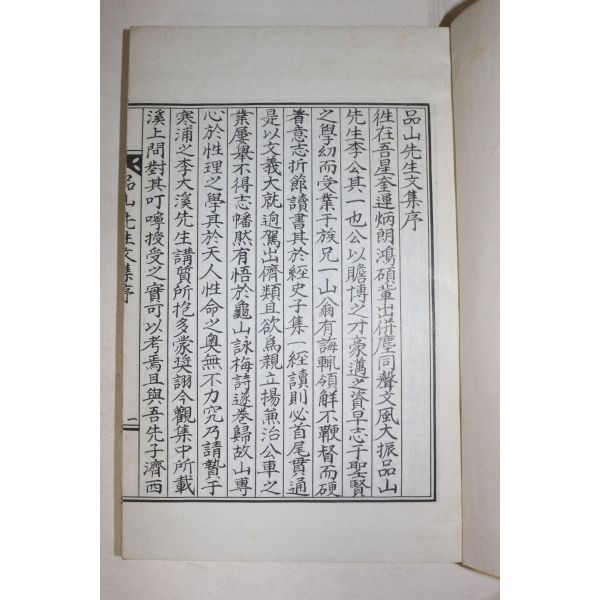 品山先生文集序
徃在吾星奎運炳朗鴻碩輩出併塵同聲文風大振品山
先生李公其一也公以贍博之才豪邁之資早志于聖賢
之學幼而受業于族兄一山翁有誨輒領解不鞭督而硬
着意志折節讀書其於經史子集一經讀則必首尾貫通
是以文義大就逈駕出儕類且欲爲親立揚兼治公車之
業屢擧不得志幡然有悟於龜山詠梅詩遂卷歸故山專
心於性理之學其於天人性命之奧無不力究乃請贄于
寒浦之李大溪先生講質所抱多蒙奬詡今觀集中所載
溪上問對其叮嚀授受之實可以考焉且與吾先子濟西
品山先生文集序
一